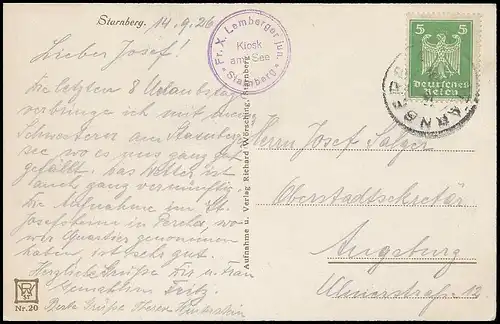 Starnberg. 14.9.26
Lieber Josef!
Die letzten 8 Urlaubstage
verbringe ich mit
Schwesterer am Starnberg
see, wo es uns ganz gut
gefällt. Das Wetter ist
auch ganz vernünftig.
Die Aufnahme im St.
Josefsheim in Percha, wo
wir Quartier genommen
haben, ist sehr gut.
Herzliche Grüße Dir u. Frau
Gemahlin Fritz.
Beste Grüße
Nr. 20
Fr. X. Lemberger jun.
Kiosk
am See
Starnberg
Aufnahme u. Verlag Richard Wörsching, Starnberg.
5 5
Deutsches
Reich
STARNBERG
Herrn Josef Salger
Oberstadtsekretär
Augsburg
Ulmerstraße 13.